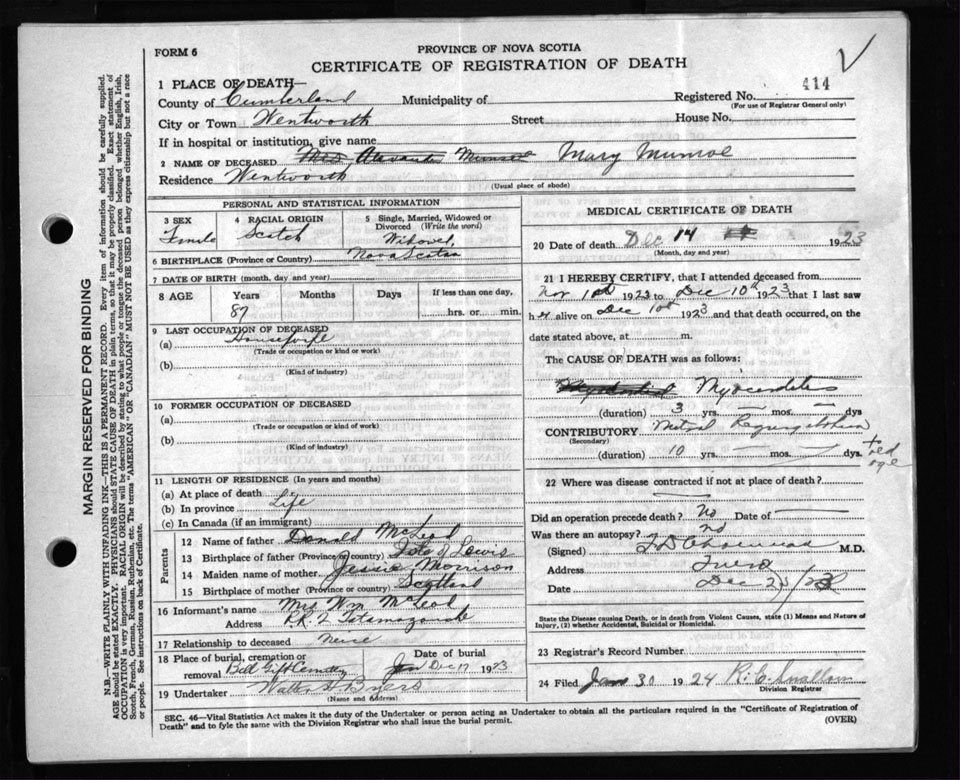 FORM 6
PROVINCE OF NOVA SCOTIA
CERTIFICATE OF REGISTRATION OF DEATH
1 PLACE OF DEATH—
414
County of Cumberland Municipality of Registered No.
(For use of Registrar General only)
City or Town Wentworth Street House No.
If in hospital or institution, give name
2 NAME OF DECEASED Mrs Munroe Mary Munroe
Residence Wentworth
(Usual place of abode)
PERSONAL AND STATISTICAL INFORMATION
3 SEX 4 RACIAL ORIGIN 5 Single, Married, Widowed or Divorced (Write the word)
Female Scotch Widowed
6 BIRTHPLACE (Province or Country) Nova Scotia
7 DATE OF BIRTH (month, day and year)
8 AGE Years Months Days If less than one day,
87 hrs. or min.
9 LAST OCCUPATION OF DECEASED
(a) Housewife
(Trade or occupation or kind or work)
(b)
(Kind of industry)
10 FORMER OCCUPATION OF DECEASED
(a)
(Trade or occupation or kind of work)
(b)
(Kind of industry)
11 LENGTH OF RESIDENCE (In years and months)
(a) At place of death
(b) In province Life
(c) In Canada (if an immigrant)
Parents
12 Name of father Donald McLeod
13 Birthplace of father (Province or country) Isle of Lewis
14 Maiden name of mother Jessie Morrison
15 Birthplace of mother (Province or country) Scotland
16 Informant's name Mrs Wm McLeod
Address R.R. 2 Tatamagouche
17 Relationship to deceased Neice
18 Place of burial, cremation or removal Date of burial
Cemetery Dec 17 1923
19 Undertaker Walter Byers
(Name and Address)
MEDICAL CERTIFICATE OF DEATH
20 Date of death Dec 14 1923
(Month, day and year)
21 I HEREBY CERTIFY, that I attended deceased from
Nov 1923 to Dec 10th 1923 that I last saw
her alive on Dec 10th 1923 and that death occurred, on the
date stated above, at m.
The CAUSE OF DEATH was as follows:
Myocardites
(duration) 3 yrs. — mos. — dys
CONTRIBUTORY Mitral Regurgitation
(Secondary)
(duration) 10 yrs. — mos. dys. + old age
22 Where was disease contracted if not at place of death?
Did an operation precede death? No Date of
Was there an autopsy? no
(Signed) M.D.
Address Truro
Date Dec
State the Disease causing Death, or in death from Violent Causes, state (1) Means and Nature of
Injury, (2) whether Accidental, Suicidal or Homicidal.
23 Registrar's Record Number
24 Filed Jan 30 1924 R. C. Swallow
Division Registrar
SEC. 46—Vital Statistics Act makes it the duty of the Undertaker or person acting as Undertaker to obtain all the particulars required in the "Certificate of Registration of
Death" and to fyle the same with the Division Registrar who shall issue the burial permit. (OVER)
MARGIN RESERVED FOR BINDING
N.B.—WRITE PLAINLY WITH UNFADING INK—THIS IS A PERMANENT RECORD. Every item of information should be carefully supplied.
AGE should be stated EXACTLY. PHYSICIANS should STATE CAUSE OF DEATH in plain terms, so that it may be properly classified. Exact statement of
OCCUPATION is very important. RACIAL ORIGIN will be described by stating to what people or tongue the deceased person belonged whether English, Irish,
Scotch, French, German, Russian, Ruthenian, etc. The terms "AMERICAN" OR "CANADIAN" MUST NOT BE USED as they express citizenship but not a race
or people. See instructions on back of Certificate.